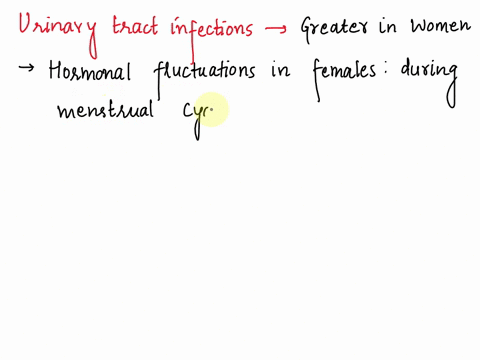 Urinary tract infections → Greater in Women
→ Hormonal fluctuations in females: during
menstrual cyc